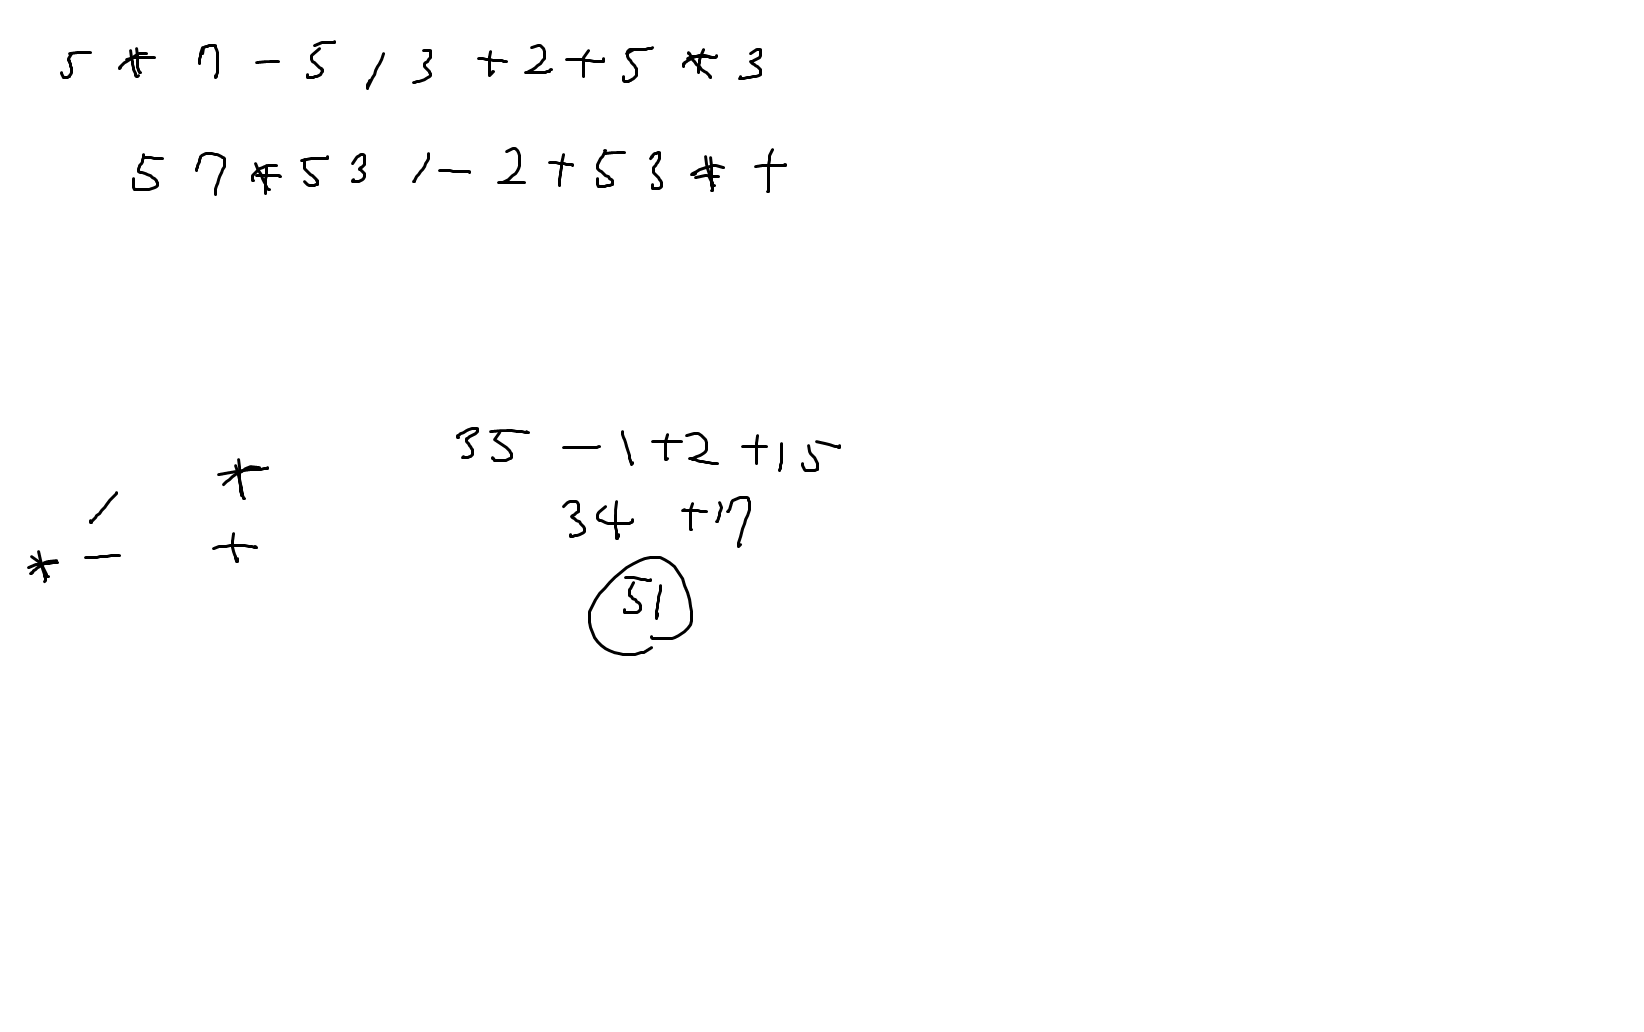 5 * 7 - 5 / 3 + 2 + 5 * 3
5 7 * 5 3 / - 2 + 5 3 * +
35 - 1 + 2 + 15
* 
/
34 + 17
* - +
51